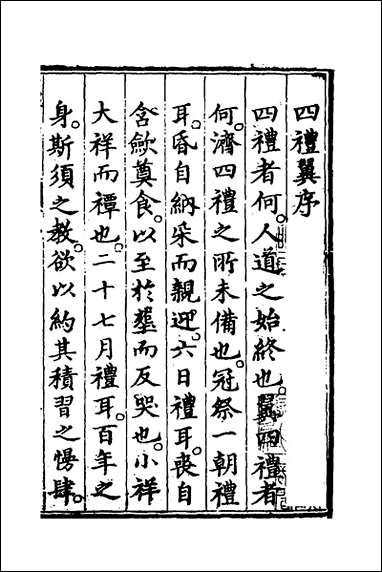 四禮翼序
四禮者何。人道之始終也。翼四禮者
何。濟四禮之所未備也。冠祭一朝禮
耳。昏自納采而親迎。六日禮耳。喪自
含歛奠食。以至於塟而反哭也。小祥
大祥而禫也。二十七月禮耳。百年之
身。斯須之教。欲以約其積習之慢肆。